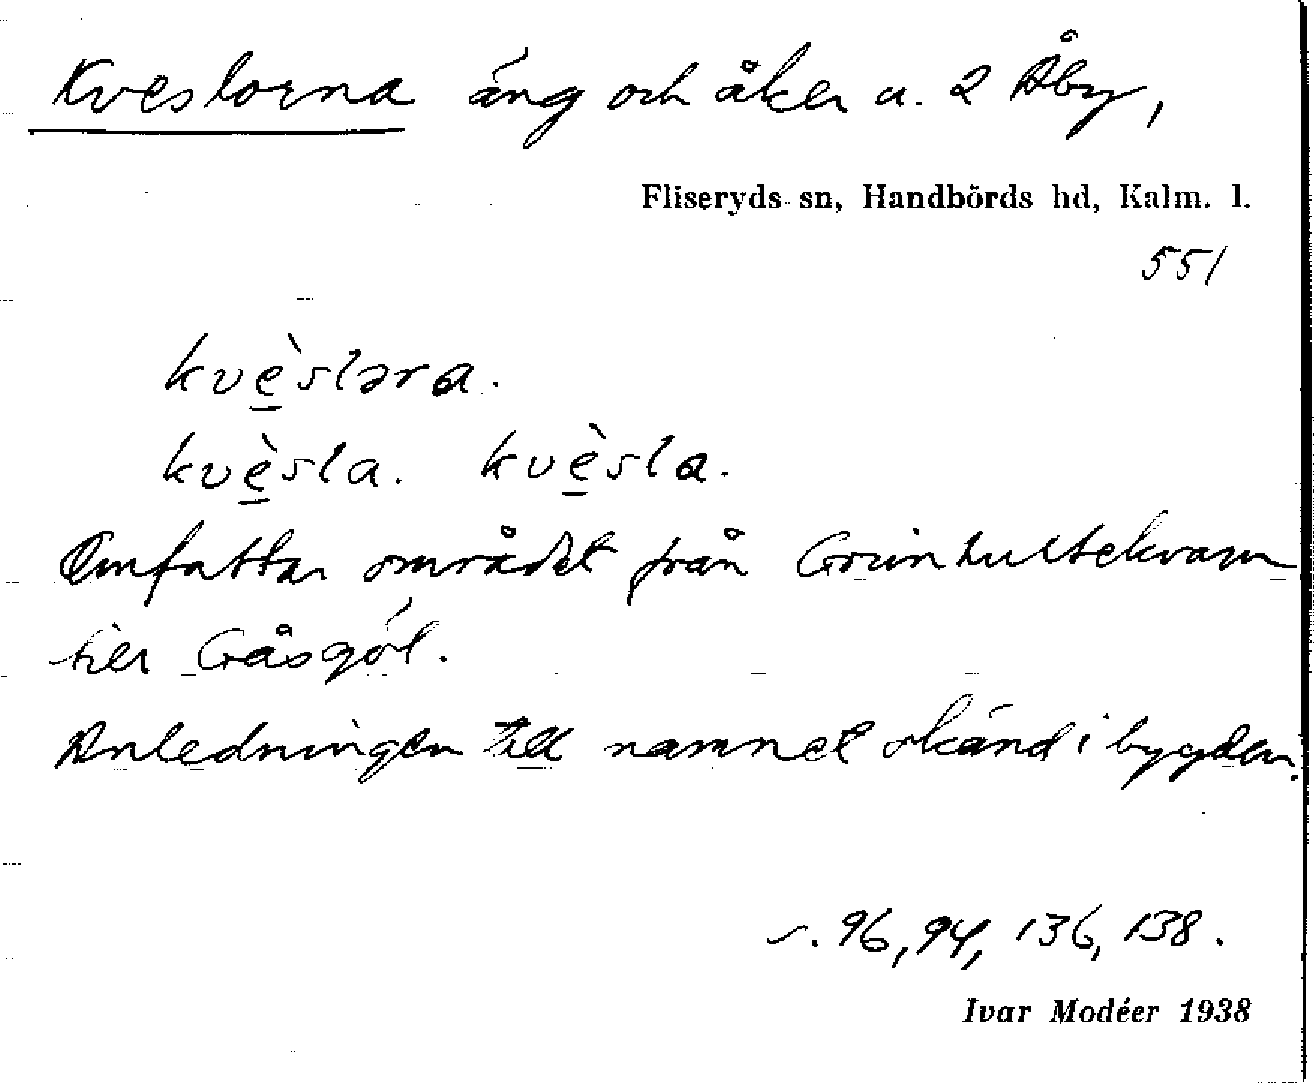 Kveslorna äng och åker u. 2 Åby,
Fliseryds sn, Handbörds hd, Kalm. l.
551
kvèslәra.
kvèsla. kvèsla.
Omfattar området från Grimhultekvarn
till Gåsgöl.
Anledningen till namnet okänd i bygden.
s. 96, 94, 136, 138.
Ivar Modéer 1938